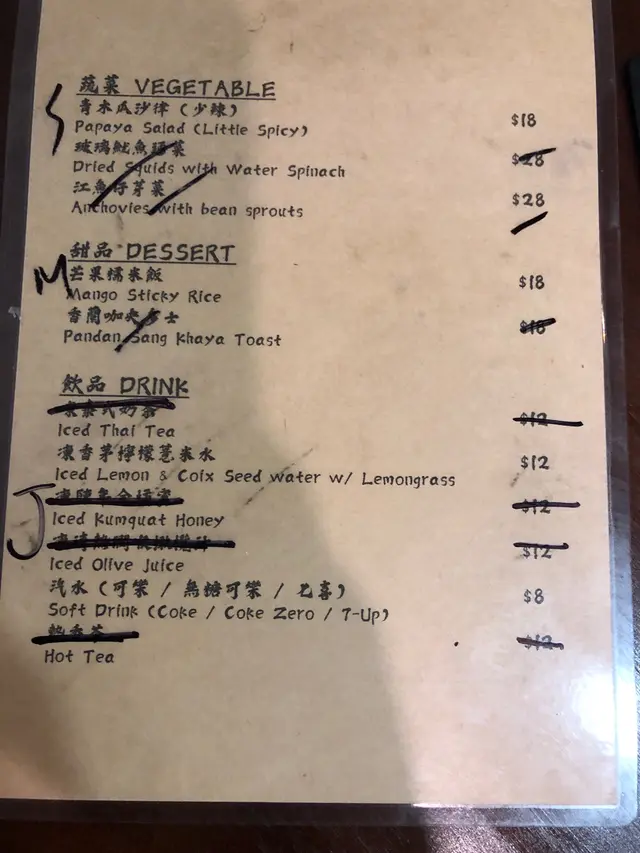 蔬菜 VEGETABLE
青木瓜沙律 (少辣)
Papaya Salad (Little Spicy) $18
玻璃魷魚菜
Dried Squids with Water Spinach $28
江魚仔芽菜
Anchovies with bean sprouts $28
甜品 DESSERT
M
芒果糯米飯
Mango Sticky Rice $18
香蘭咖央多士
Pandan Sang Khaya Toast $18
飲品 DRINK
Iced Thai Tea $12
凍香茅檸檬薏米水
Iced Lemon & Coix Seed water w/ Lemongrass $12
J
Iced Kumquat Honey $12
Iced Olive Juice $12
汽水 (可樂 / 無糖可樂 / 七喜)
Soft Drink (Coke / Coke Zero / 7-Up) $8
Hot Tea $12